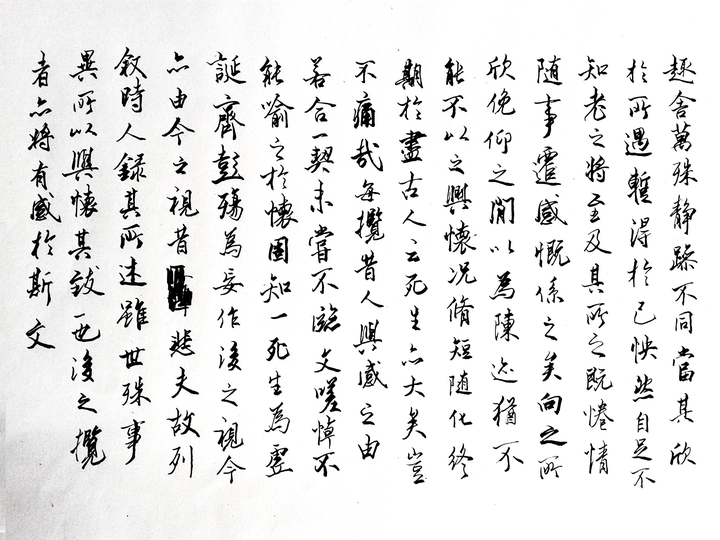 趣舍萬殊静躁不同當其欣
於所遇暫得於己怏然自足不
知老之將至及其所之既惓情
随事遷感慨係之矣向之所
欣俛仰之閒以為陳迹猶不
能不以之興懷况脩短随化終
期於盡古人云死生亦大矣豈
不痛哉每攬昔人興感之由
若合一契未嘗不臨文嗟悼不
能喻之於懷固知一死生為虚
誕齊彭殤為妄作後之視今
亦由今之視昔悲夫故列
叙時人録其所述雖世殊事
異所以興懷其致一也後之攬
者亦將有感於斯文